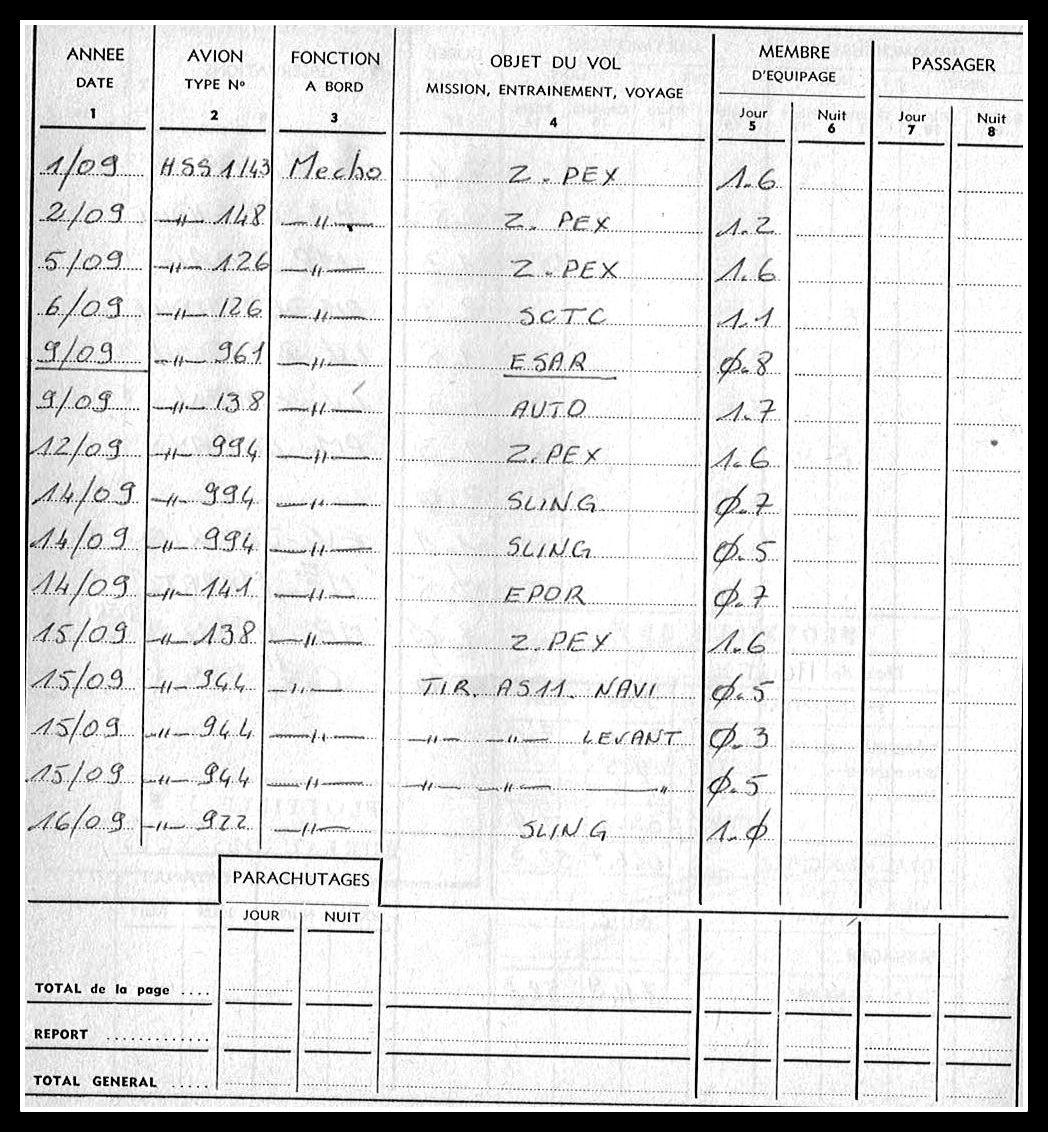 ANNEE AVION FONCTION OBJET DU VOL MEMBRE PASSAGER
DATE TYPE Nº A BORD MISSION, ENTRAINEMENT, VOYAGE D'EQUIPAGE
1 2 3 4 Jour 5 Nuit 6 Jour 7 Nuit 8
1/09 HSS 1/143 Mecbo Z. PEX 1.6
2/09 —〃— 148 —〃— Z. PEX 1.2
5/09 —〃— 126 —〃— Z. PEX 1.6
6/09 —〃— 126 —〃— SCTC 1.1
9/09 —〃— 961 —〃— ESAR Ø.8
9/09 —〃— 138 —〃— AUTO 1.7
12/09 —〃— 994 —〃— Z. PEX 1.6
14/09 —〃— 994 —〃— SLING Ø.7
14/09 —〃— 994 —〃— SLING Ø.5
14/09 —〃— 141 —〃— EPDR Ø.7
15/09 —〃— 138 —〃— Z. PEX 1.6
15/09 —〃— 944 —〃— TIR. AS11. NAVI Ø.5
15/09 —〃— 944 —〃— —〃— —〃— LEVANT Ø.3
15/09 —〃— 944 —〃— —〃— —〃— —〃 Ø.5
16/09 —〃— 922 —〃— SLING 1.Ø
PARACHUTAGES
JOUR NUIT
TOTAL de la page ....
REPORT ............
TOTAL GENERAL .....